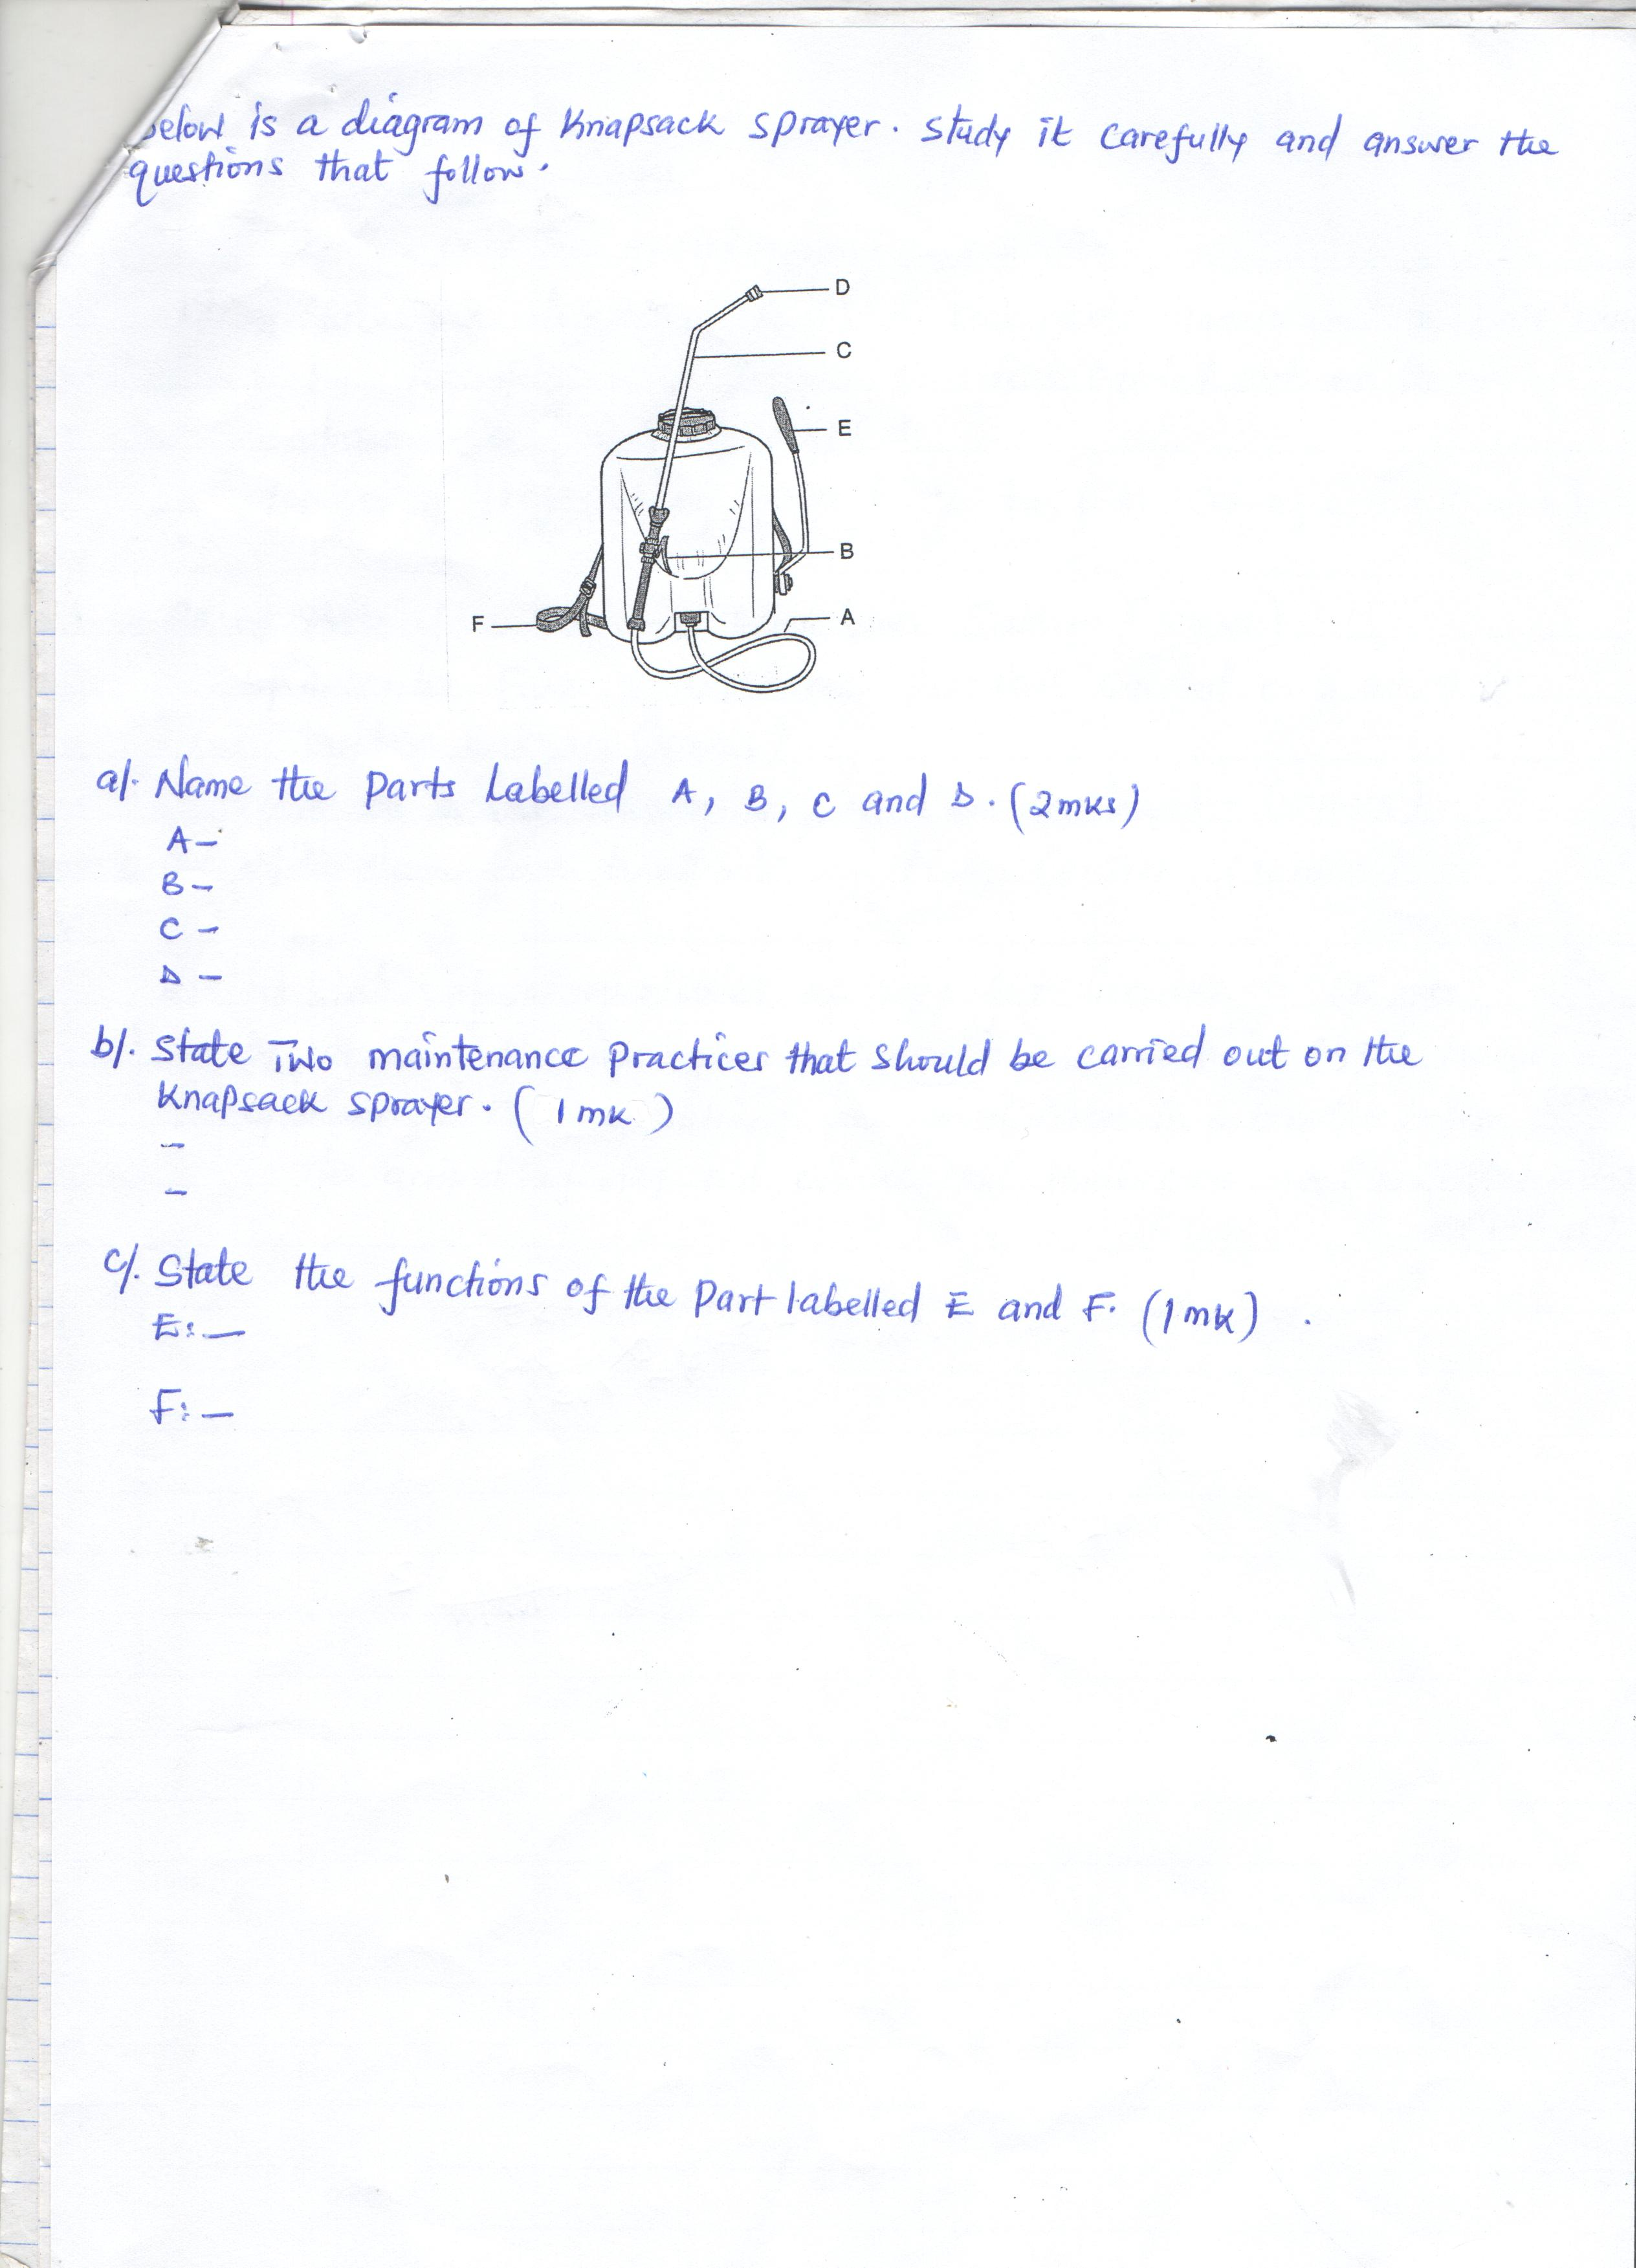 Below is a diagram of Knapsack sprayer. Study it carefully and answer the
questions that follow.
D
C
E
B
A
F
a/. Name the parts labelled A, B, C and D. (2mks)
A-
B-
C-
D-
b/. State Two maintenance practices that should be carried out on the
Knapsack sprayer. (1mk)
-
-
c/. State the functions of the part labelled E and F. (1mk).
E:-
F:-